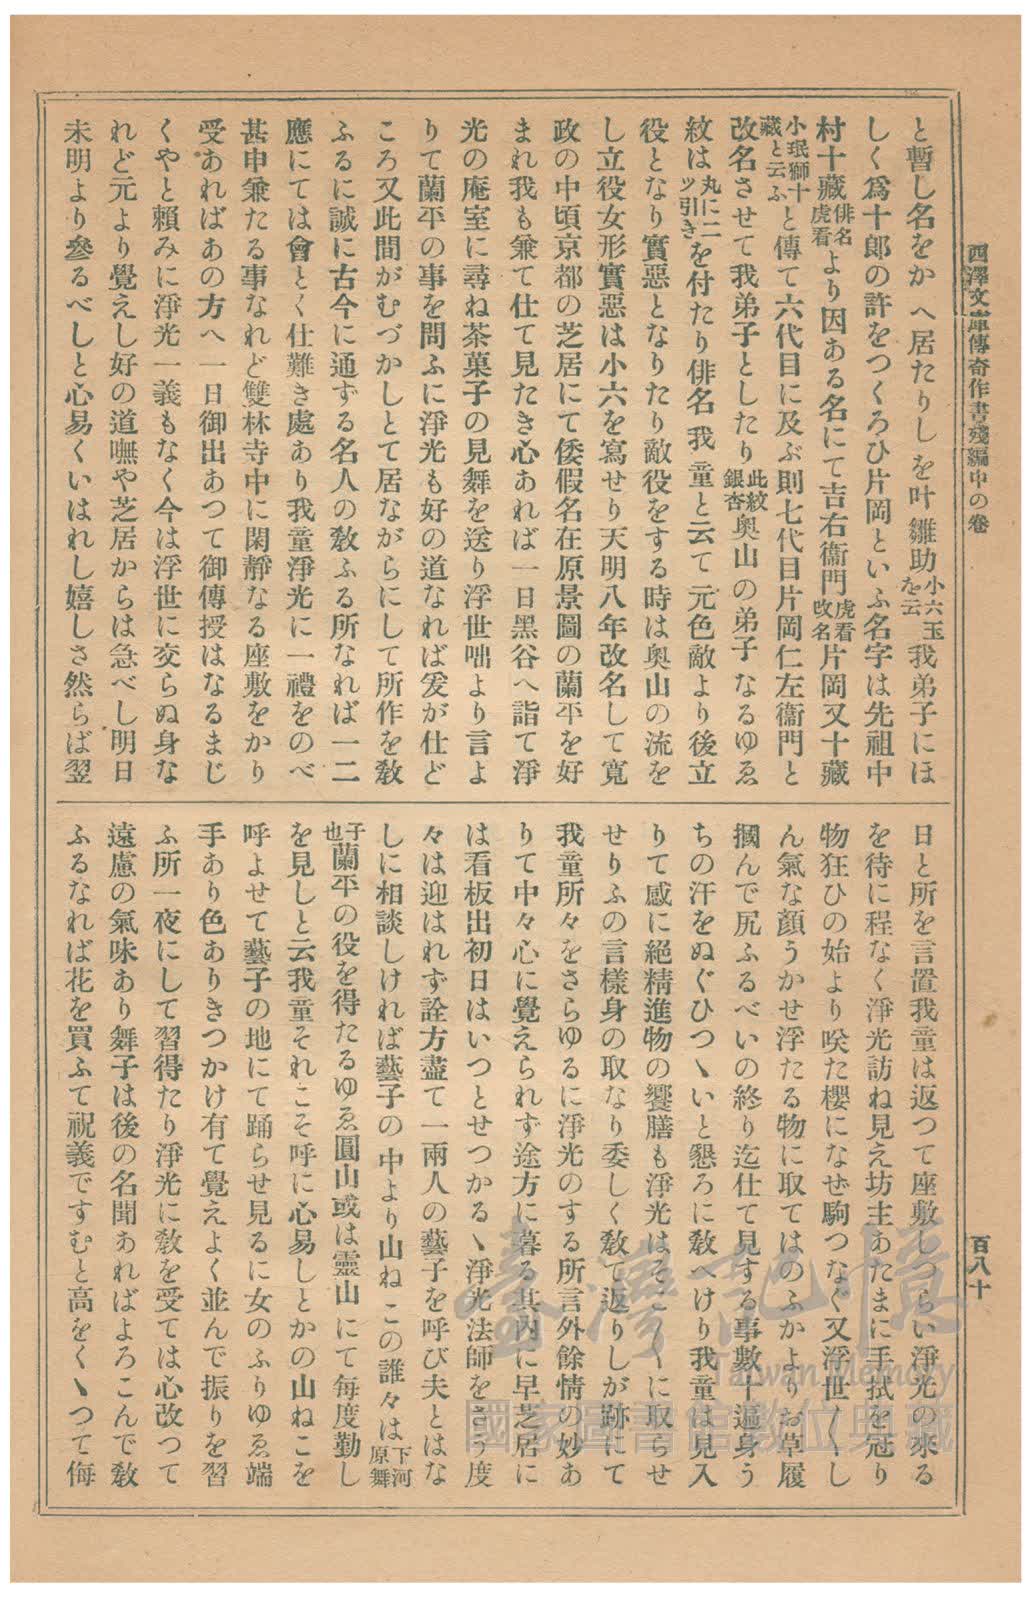 西澤文庫傳奇作書殘編中の卷
百八十
と暫し名をかへ居たりしを叶雛助小六玉を云我弟子にほ
しく爲十郎の許をつくろひ片岡といふ名字は先祖中
村十藏俳名虎看より因ある名にて吉右衞門虎看改名片岡又十藏
小珉獅十藏と云ふと傳て六代目に及ぶ則七代目片岡仁左衞門と
改名させて我弟子としたり此紋銀杏奧山の弟子なるゆゑ
紋は丸に二ツ引きを付たり俳名我童と云て元色敵より後立
役となり實惡となりたり敵役をする時は奧山の流を
し立役女形實惡は小六を寫せり天明八年改名して寬
政の中頃京都の芝居にて倭假名在原景圖の蘭平を好
まれ我も兼て仕て見たき心あれば一日黑谷へ詣て淨
光の庵室に尋ね茶菓子の見舞を送り浮世咄より言よ
りて蘭平の事を問ふに淨光も好の道なれば爰が仕ど
ころ又此間がむづかしとて居ながらにして所作を敎
ふるに誠に古今に通ずる名人の敎ふる所なれば一二
應にては會とく仕難き處あり我童淨光に一禮をのべ
甚申兼たる事なれど雙林寺中に閑靜なる座敷をかり
受あればあの方へ一日御出あつて御傳授はなるまじ
くやと賴みに淨光一義もなく今は浮世に交らぬ身な
れど元より覺えし好の道嘸や芝居からは急べし明日
未明より參るべしと心易くいはれし嬉しさ然らば翌
日と所を言置我童は返つて座敷しつらい淨光の來る
を待に程なく淨光訪ね見え坊主あたまに手拭を冠り
物狂ひの始より咲た櫻になぜ駒つなぐ又浮世〱し
ん氣な顏うかせ浮たる物に取てはのふかよりお草履
摑んで尻ふるべいの終り迄仕て見する事數十遍身う
ちの汗をぬぐひつゝいと懇ろに敎へけり我童は見入
りて感に絕精進物の饗膳も淨光はそこ〱に取らせ
せりふの言樣身の取なり委しく敎て返りしが跡にて
我童所々をさらゆるに淨光のする所言外餘情の妙あ
りて中々心に覺えられず途方に暮る其內に早芝居に
は看板出初日はいつとせつかるゝ淨光法師をさう度
々は迎はれず詮方盡て一兩人の藝子を呼び夫とはな
しに相談しければ藝子の中より山ねこの誰々は下河原舞
子也蘭平の役を得たるゆゑ圓山或は靈山にて每度勤し
を見しと云我童それこそ呼に心易しとかの山ねこを
呼よせて藝子の地にて踊らせ見るに女のふりゆゑ端
手あり色ありきつかけ有て覺えよく並んで振りを習
ふ所一夜にして習得たり淨光に敎を受ては心改つて
遠慮の氣味あり舞子は後の名聞あればよろこんで敎
ふるなれば花を買ふて祝義ですむと高をくゝつて侮
臺灣記憶
Taiwan Memory
國家圖書館數位典藏